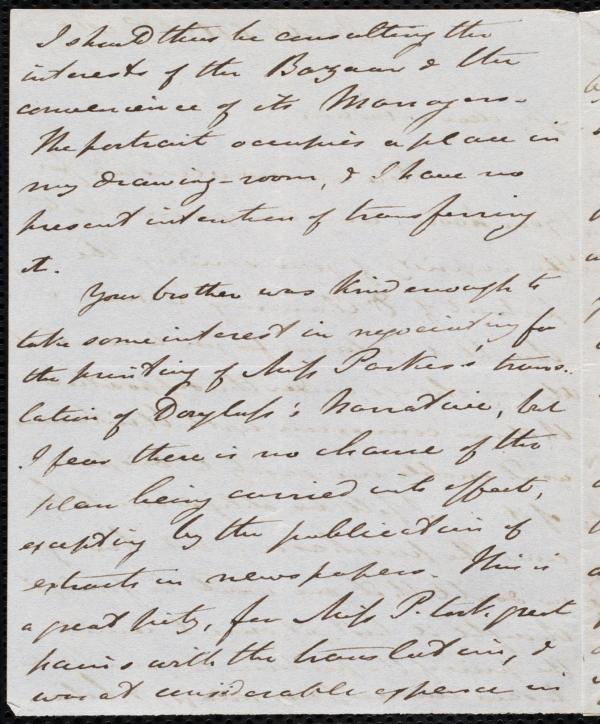 I should thus be consulting the
interests of the Bazaar & the
convenience of its Managers.
The portrait occupies a place in
my drawing-room, & I have no
present intention of transferring
it.
Your brother was kind enough to
take some interest in negociating for
the printing of Miss Parkes's trans-
lation of Douglass's Narrative, but
I fear there is no chance of the
plan being carried into effect,
excepting by the publication of
extracts in newspapers. This is
a great pity, for Miss P. took great
pains with the translation, &
was at considerable expence in